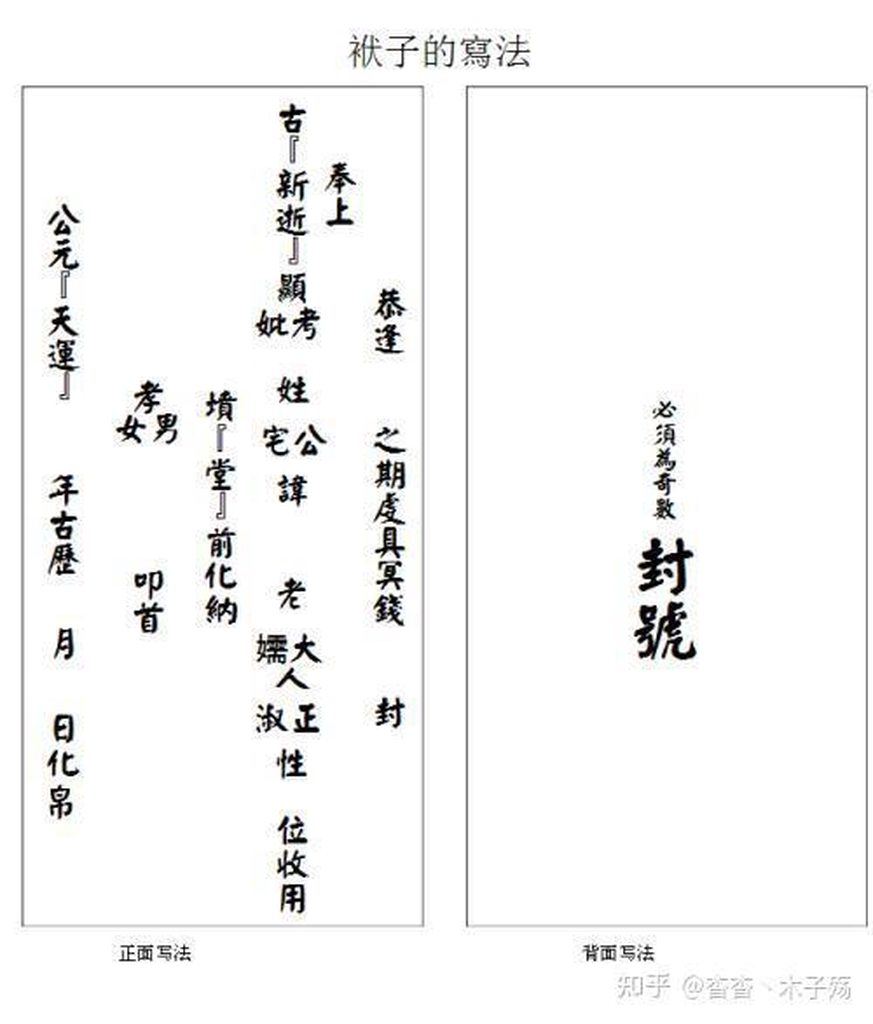 袱子的寫法
恭逢 之期虔具冥錢 封
奉上
古『新逝』顯考妣 姓公宅諱 老大孺人正淑性 位收用
墳『堂』前化納
孝男女 叩首
公元『天運』 年古歷 月 日化帛
必須為奇數
封號
正面写法
背面写法
知乎 @杳杳丶木子殇